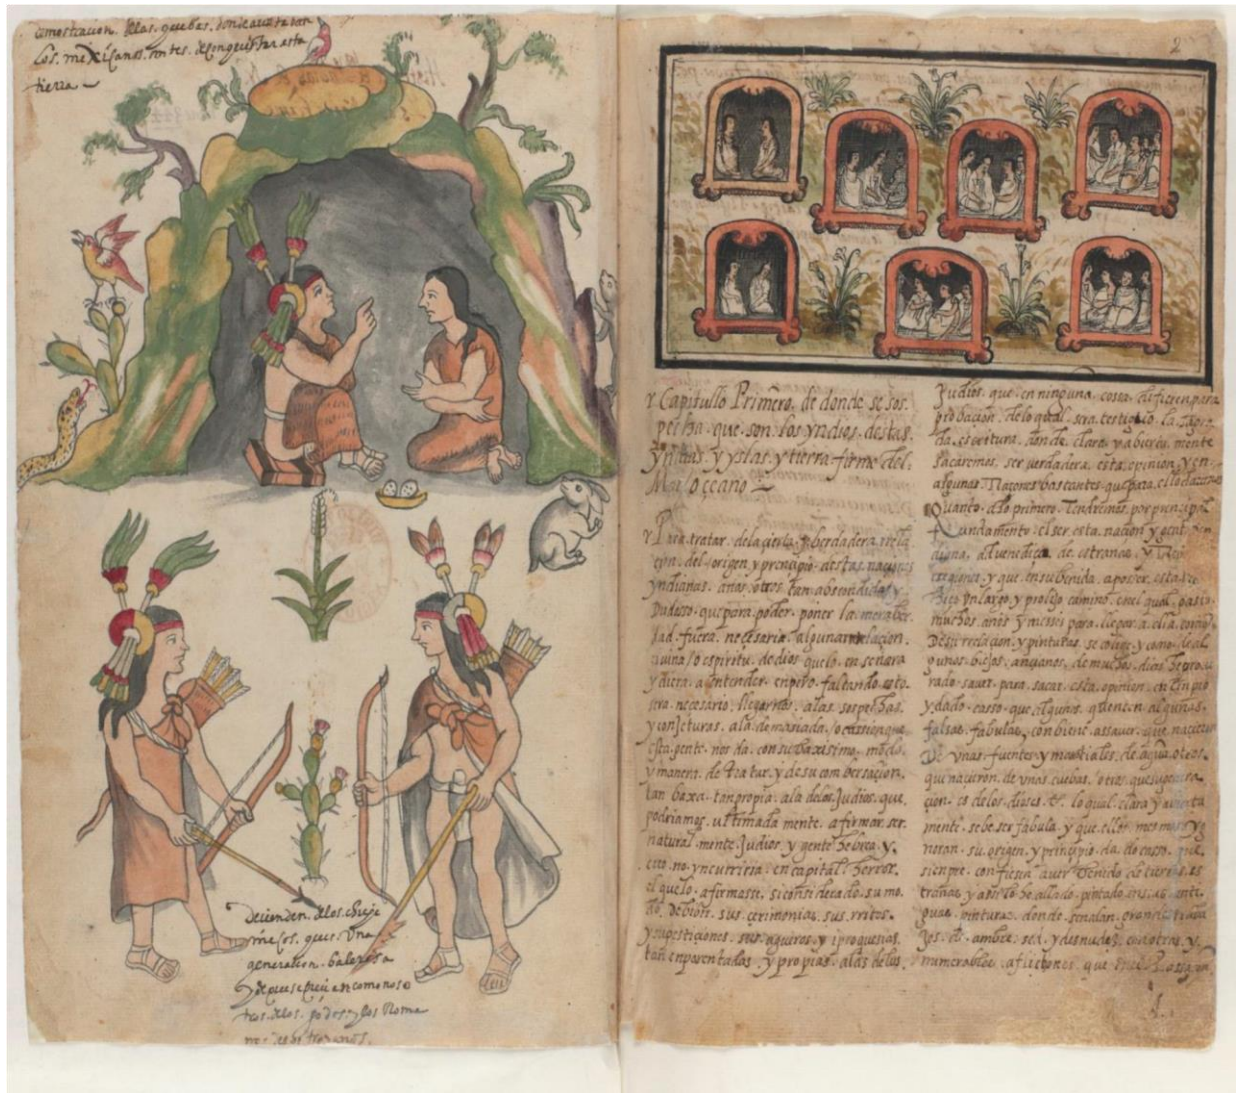 demostracion. delas. quebas. donde avitavan
Los. mexicanos. antes. de conquistar esta
tierra
Decienden. delos. chichi
mecos. ques. Una
generacion. balerosa
y de que se precian como noso
tros. delos. godos. y los Roma
nos
2
Capitullo Primero. de donde se sos
pecha. que son. los yndios. destas.
yndias. y yslas. y tierra firme del
Mar occeano
Para. tratar. dela cierta. y berdadera. rrela
çion. del. origen. y prençipio. destas. naciones
yndianas. a nosotros. tan. abscondido. y
Dudosso. que para. poder. poner la. mera ber
dad. fuera. neçesaria. alguna rrevelacion.
divina / o espiritu. de dios que lo. enseñara
y diera. a entender. enpero. faltando. esto
sera. neçesario. llegarnos. a las. sospechas.
y conjeturas. a la. demasiada. / ocassion que
esta gente. nos da. con su baxissimo. modo.
y manera. de tratar. y de su comberssaçion.
tan baxa. tan propia. a la delos Judios. que
podriamos. ultimada mente. afirmar. ser.
natural mente. Judios y gente hebrea y.
creo. no. yncurriria. en capital. herror.
el que lo. afirmasse. si considerado. su mo
do. de bivir. sus. çerimonias. sus. rritos.
y supestiçiones. sus. agueros. y ipoquesias.
tan enparentadas. y propias. a las de los.
Judios. que. en ninguna. cossa. difieren para
probaçion. de lo qual. sera. testigo. la sagra
da. escritura. donde. clara. y abierta. mente
sacaremos. ser verdadera. esta. opinion. y en
algunas. rraçones bastantes. que para. ello daremos
Quanto. a lo primero. Tendremos. por prinçipal
fundamento. el ser esta. nacion. y gente yn
diana, advenediça. de estrañas. y rremotas
regiones. y que. en su benida. a poseer. esta tierra
hiço. un largo. y prolijo camino. en el qual. gasto
muchos. años. y messes para. llegar. a ella. como
de su rrelaçion. y pinturas. se colije. y como. de al
gunos. biejos. ançianos, de muchos. dias. he procu
rado. saver. para. sacar. esta. opinion. en linpio
y dado. casso. que algunos. quenten. algunas.
falsas. fabulas, conbiene. assaver. que. naçieron
De unas. fuentes. y manantiales. de. agua. otros.
que naçieron. de unas. cuebas. otros. que su genera
çion. es delos. dioses. &. lo qual. clara y avierta
mente. se be. ser fabula. y que ellos mesmos yg
noran. su. origen. y prinçipio. dado casso. que
siempre. confiesan aver benido. de tierras. es
trañas. y assi lo he allado. pintado en sus. anti
guas. pinturas. donde. señalan. grandes traba
jos. de. ambre. sed. y desnudez. con otras. yn
numerables. afliçiones. que en el. passaron